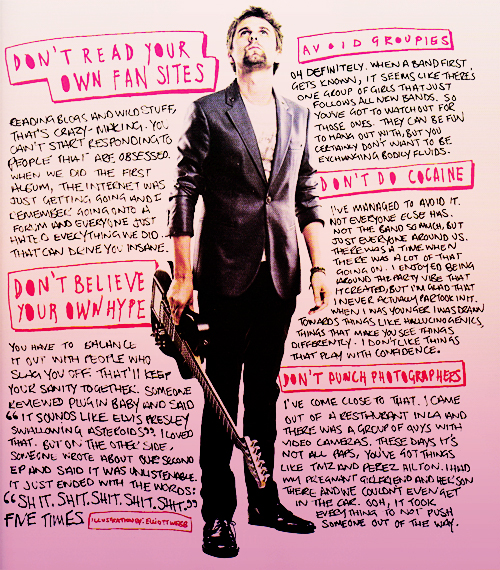 DON'T READ YOUR
OWN FAN SITES
READING BLOGS AND WILD STUFF,
THAT'S CRAZY-MAKING. YOU
CAN'T START RESPONDING TO
PEOPLE THAT ARE OBSESSED.
WHEN WE DID THE FIRST
ALBUM, THE INTERNET WAS
JUST GETTING GOING AND I
REMEMBER GOING ONTO A
FORUM AND EVERYONE JUST
HATED EVERYTHING WE DID.
THAT CAN DRIVE YOU INSANE.
DON'T BELIEVE
YOUR OWN HYPE
YOU HAVE TO BALANCE
IT OUT WITH PEOPLE WHO
SLAG YOU OFF. THAT'LL KEEP
YOUR SANITY TOGETHER. SOMEONE
REVIEWED PLUG IN BABY AND SAID
“IT SOUNDS LIKE ELVIS PRESLEY
SWALLOWING ASTEROIDS”. I LOVED
THAT. BUT ON THE OTHER SIDE,
SOMEONE WROTE ABOUT OUR SECOND
EP AND SAID IT WAS UNLISTENABLE.
IT JUST ENDED WITH THE WORDS:
“SHIT. SHIT. SHIT. SHIT. SHIT.”
FIVE TIMES.
ILLUSTRATION BY: ELLIOTT WEBB
AVOID GROUPIES
OH DEFINITELY. WHEN A BAND FIRST
GETS KNOWN, IT SEEMS LIKE THERE'S
ONE GROUP OF GIRLS THAT JUST
FOLLOWS ALL NEW BANDS. SO
YOU'VE GOT TO WATCH OUT FOR
THOSE ONES. THEY CAN BE FUN
TO HANG OUT WITH, BUT YOU
CERTAINLY DON'T WANT TO BE
EXCHANGING BODILY FLUIDS.
DON'T DO COCAINE
I'VE MANAGED TO AVOID IT.
NOT EVERYONE ELSE HAS.
NOT THE BAND SO MUCH, BUT
JUST EVERYONE AROUND US.
THERE WAS A TIME WHEN
THERE WAS A LOT OF THAT
GOING ON. I ENJOYED BEING
AROUND THE PARTY VIBE THAT
IT CREATED, BUT I'M GLAD THAT
I NEVER ACTUALLY PARTOOK IN IT.
WHEN I WAS YOUNGER I WAS DRAWN
TOWARDS THINGS LIKE HALLUCINOGENICS,
THINGS THAT MAKE YOU SEE THINGS
DIFFERENTLY. I DON'T LIKE THINGS
THAT PLAY WITH CONFIDENCE.
DON'T PUNCH PHOTOGRAPHERS
I'VE COME CLOSE TO THAT. I CAME
OUT OF A RESTAURANT IN LA AND
THERE WAS A GROUP OF GUYS WITH
VIDEO CAMERAS. THESE DAYS IT'S
NOT ALL PAPS, YOU'VE GOT THINGS
LIKE TMZ AND PEREZ HILTON. I HAD
MY PREGNANT GIRLFRIEND AND HER SON
THERE AND WE COULDN'T EVEN GET
IN THE CAR. OOH, IT TOOK
EVERYTHING TO NOT PUSH
SOMEONE OUT OF THE WAY.